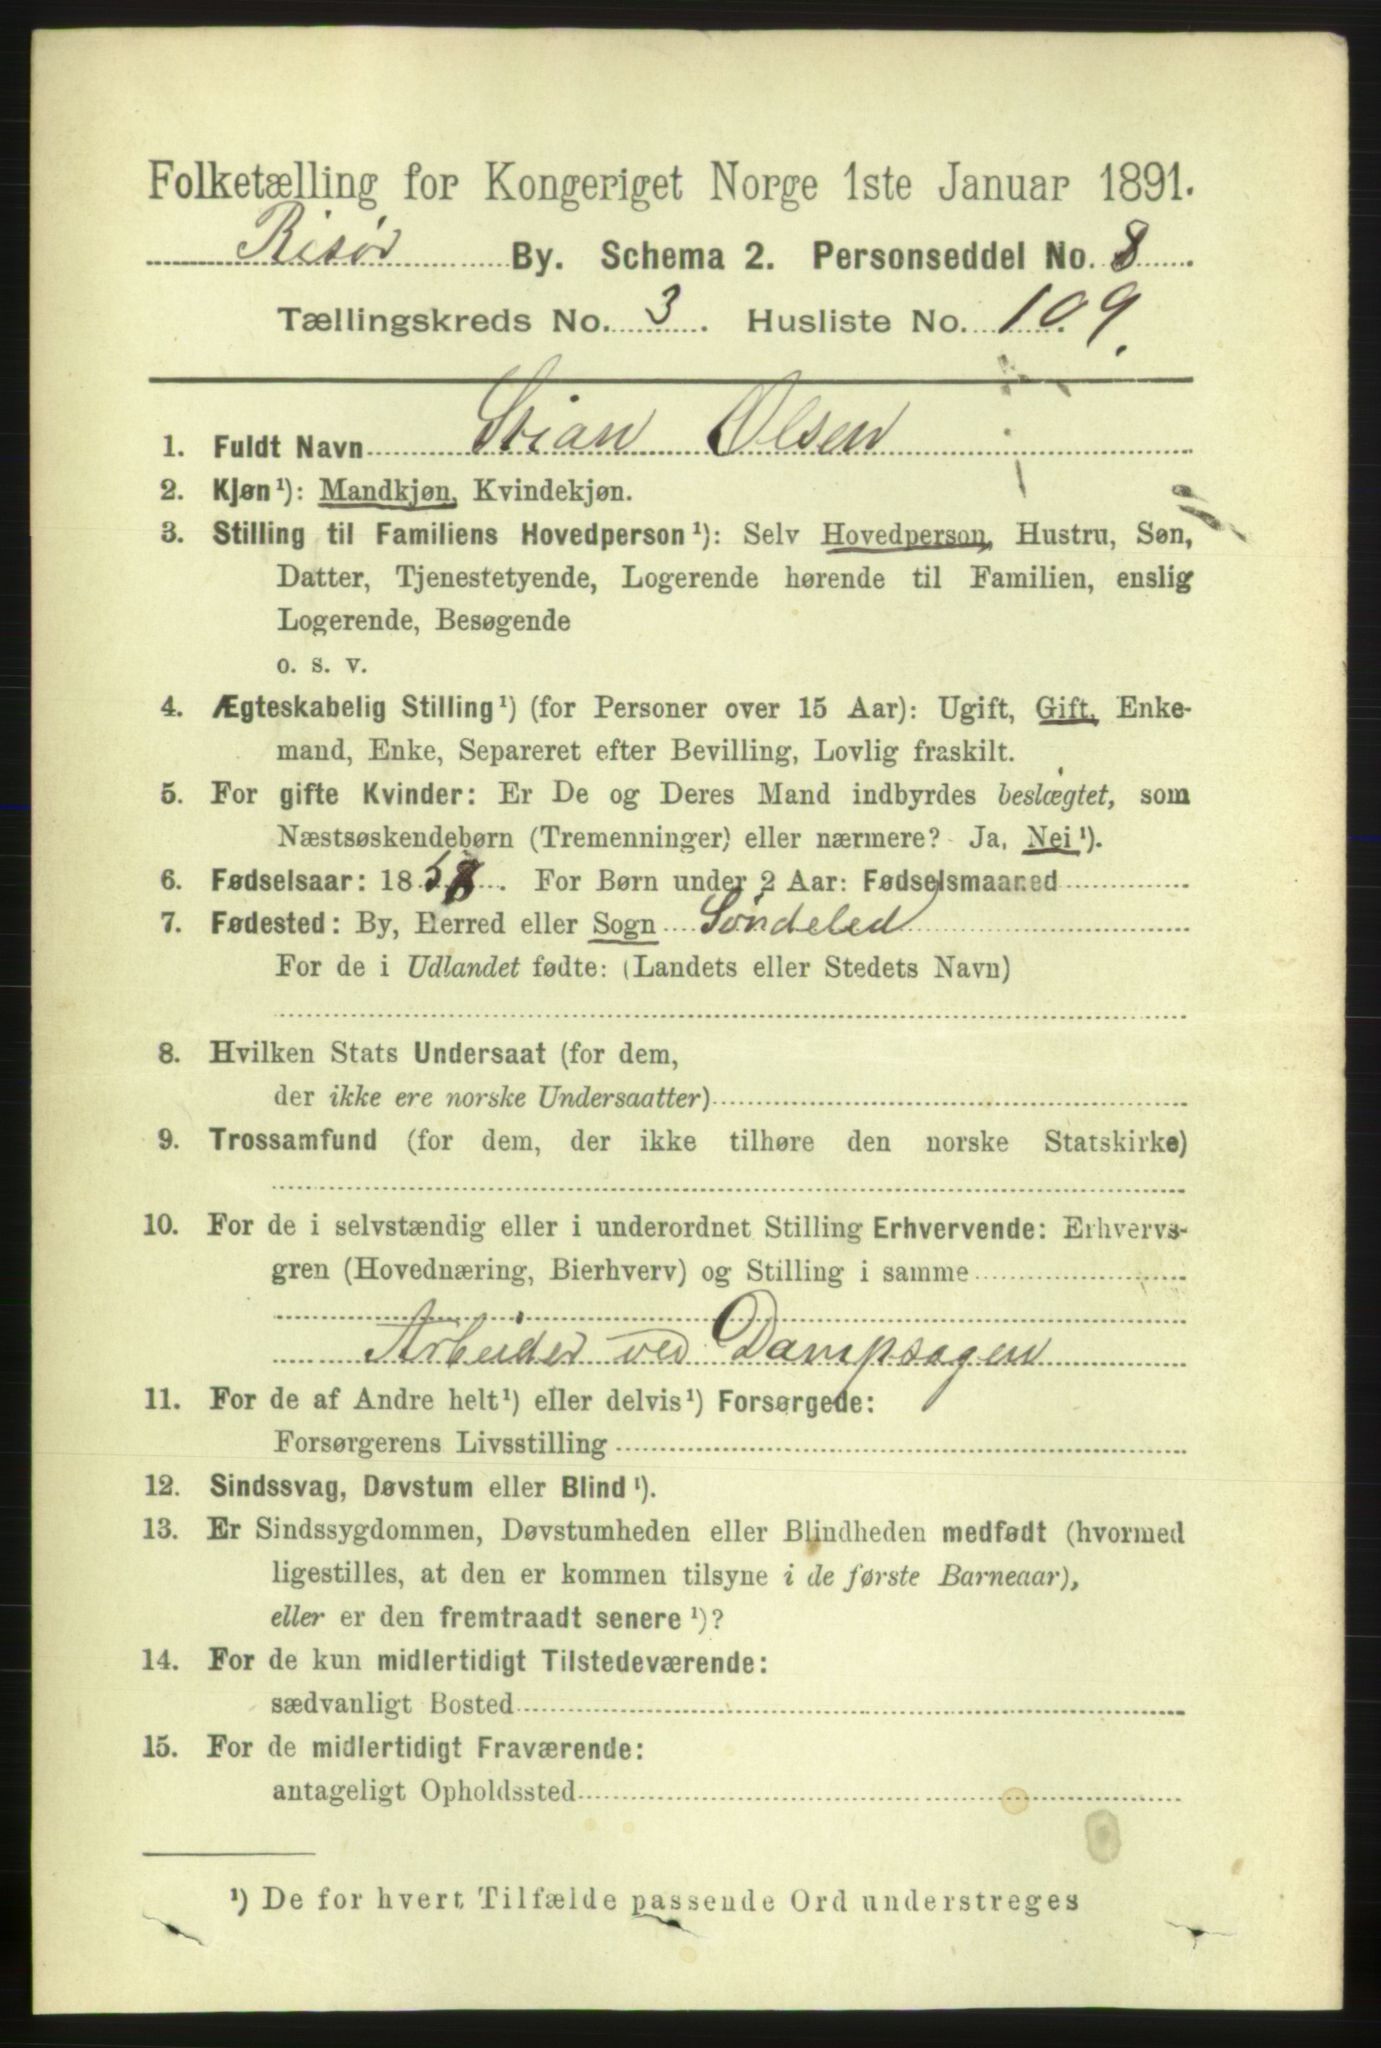 Folketælling for Kongeriget Norge 1ste Januar 1891.
Risør By. Schema 2. Personseddel No. 8
Tællingskreds No. 3. Husliste No. 109.
1. Fuldt Navn Stian Olsen
2. Kjøn¹): Mandkjøn, Kvindekjøn.
3. Stilling til Familiens Hovedperson¹): Selv Hovedperson, Hustru, Søn,
Datter, Tjenestetyende, Logerende hørende til Familien, enslig
Logerende, Besøgende
o. s. v.
4. Ægteskabelig Stilling¹) (for Personer over 15 Aar): Ugift, Gift, Enke-
mand, Enke, Separeret efter Bevilling, Lovlig fraskilt.
5. For gifte Kvinder: Er De og Deres Mand indbyrdes beslægtet, som
Næstsøskendebørn (Tremenninger) eller nærmere? Ja, Nei¹).
6. Fødselsaar: 18 . For Børn under 2 Aar: Fødselsmaaned
7. Fødested: By, Herred eller Sogn Søndeled
For de i Udlandet fødte: (Landets eller Stedets Navn)
8. Hvilken Stats Undersaat (for dem,
der ikke ere norske Undersaatter)
9. Trossamfund (for dem, der ikke tilhøre den norske Statskirke)
10. For de i selvstændig eller i underordnet Stilling Erhvervende: Erhvervs-
gren (Hovednæring, Bierhverv) og Stilling i samme
Arbeider ved Dampsagen
11. For de af Andre helt¹) eller delvis¹) Forsørgede:
Forsørgerens Livsstilling
12. Sindssvag, Døvstum eller Blind¹).
13. Er Sindssygdommen, Døvstumheden eller Blindheden medfødt (hvormed
ligestilles, at den er kommen tilsyne i de første Barneaar),
eller er den fremtraadt senere¹)?
14. For de kun midlertidigt Tilstedeværende:
sædvanligt Bosted
15. For de midlertidigt Fraværende:
antageligt Opholdssted
¹) De for hvert Tilfælde passende Ord understreges